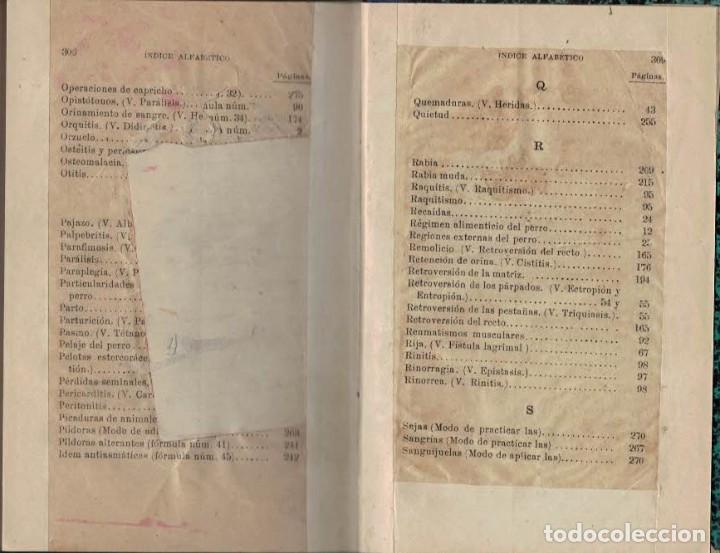 306
INDICE ALFABETICO
Páginas.
Operaciones de capricho 32). 275
Opistótonos. (V. Parálisis.) ula núm. 90
Orinamiento de sangre. (V. He núm. 34) 174
Orquitis. (V. Didi núm. 2
Orzuelo
Osteitis y
Osteomalacia.
Otitis
Pajazo. (V. Alb
Palpebritis. (V.
Parafimosis. (V.
Parálisis
Paraplegia. (V. P
Particularidades
perro
Parto
Parturición. (V. Pa
Pasmo. (V. Tétano
Pelaje del perro
Pelotas estercorác
tión.)
Pérdidas seminales.
Pericarditis. (V. Car
Peritonitis
Picaduras de animale
Píldoras (Modo de
Píldoras alterantes (fórmula núm. 41) 241
Idem antiasmáticas (fórmula núm. 45) 242
INDICE ALFABETICO
309
Páginas.
Q
Quemaduras. (V. Heridas.) 43
Quietud 255
R
Rabia 209
Rabia muda. 215
Raquitis. (V. Raquitismo.) 95
Raquitismo 95
Recaídas 24
Régimen alimenticio del perro 12
Regiones externas del perro
Remolicio. (V. Retroversión del recto.) 165
Retención de orina. (V. Cistitis.) 176
Retroversión de la matriz. 194
Retroversión de los párpados. (V. Ectropión y
Entropión.) 54 y 55
Retroversión de las pestañas. (V. Triquiasis.) 55
Retroversión del recto. 165
Reumatismos musculares 92
Rija. (V. Fístula lagrimal) 67
Rinitis. 98
Rinorragia. (V. Epistasis.) 97
Rinorrea. (V. Rinitis.) 98
S
Sejas (Modo de practicar las) 270
Sangrias (Modo de practicar las) 267
Sanguijuelas (Modo de aplicar las) 270
todocoleccion